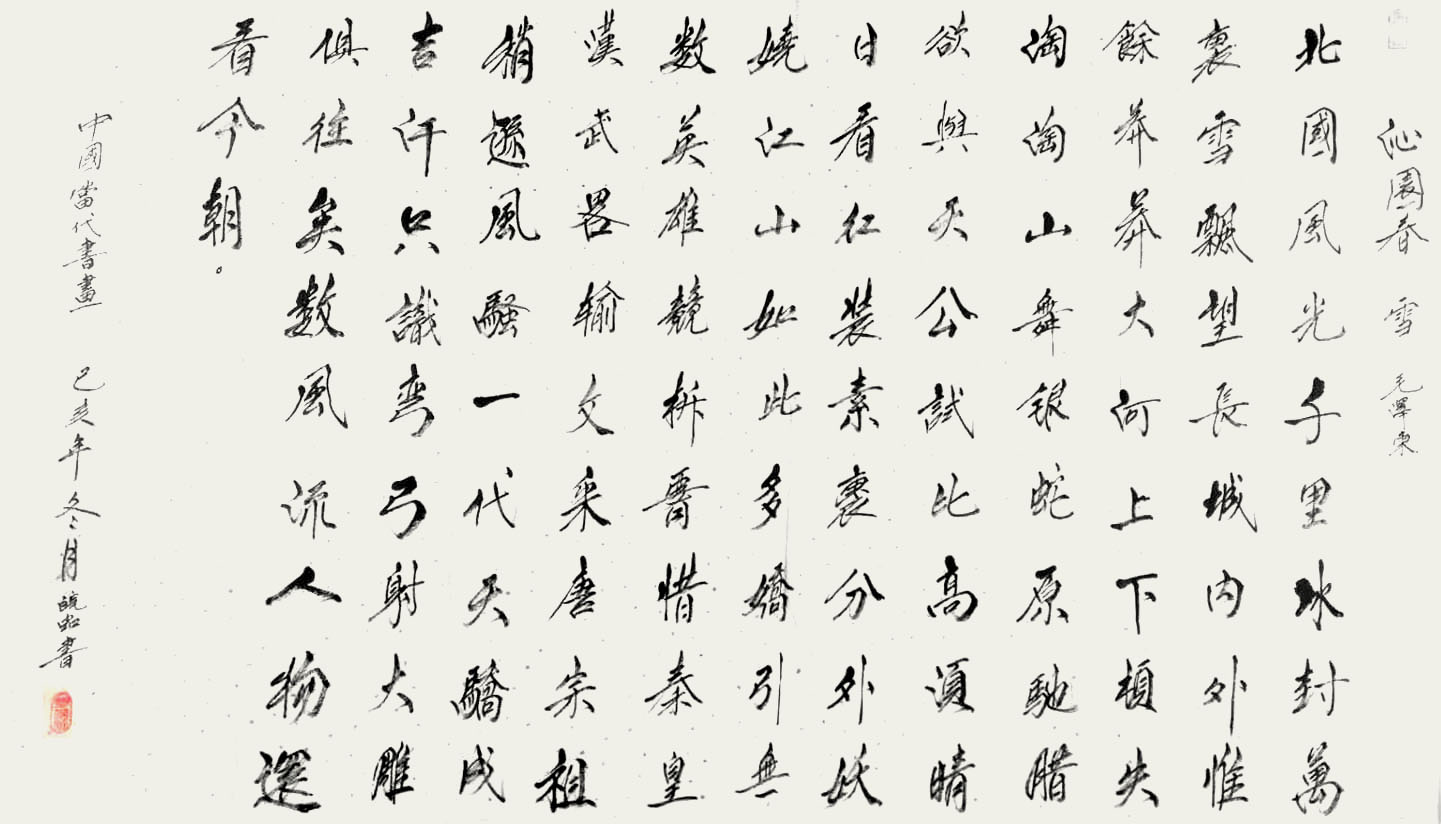 沁園春 雪 毛澤東
北國風光千里冰封萬
裏雪飄望長城内外惟
餘莽莽大河上下頓失
淘淘山舞银蛇原馳腊
欲與天公試比高須晴
日看红装素裹分外妖
嬈江山如此多嬌引無
数英雄競折腰惜秦皇
漢武畧输文采唐宗祖
稍遜風騷一代天驕成
吉汗只識弯弓射大雕
俱往矣数風流人物還
看今朝。
中國當代書畫 己亥年冬月 書